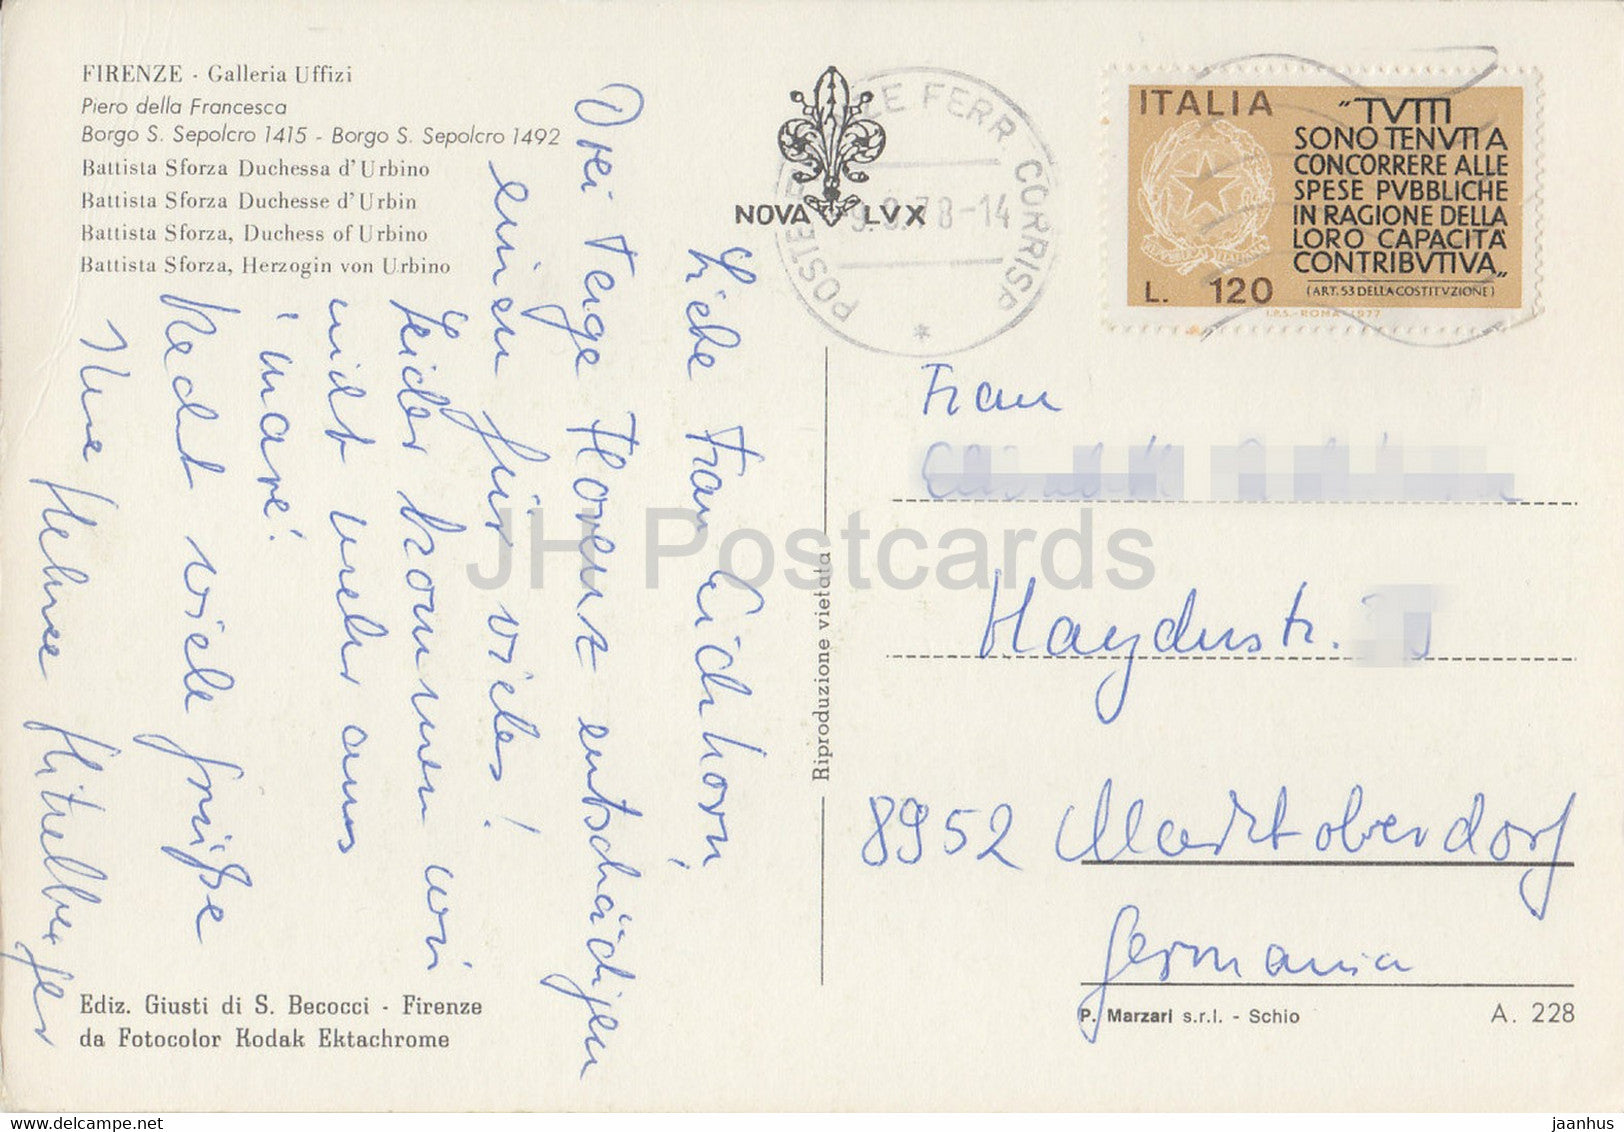 FIRENZE - Galleria Uffizi
Piero della Francesca
Borgo S. Sepolcro 1415 - Borgo S. Sepolcro 1492
Battista Sforza Duchessa d'Urbino
Battista Sforza Duchesse d'Urbin
Battista Sforza, Duchess of Urbino
Battista Sforza, Herzogin von Urbino
NOVA LVX
POSTE FERR. CORRISP
.78-14
ITALIA
"TVTTI
SONO TENVTI A
CONCORRERE ALLE
SPESE PVBBLICHE
IN RAGIONE DELLA
LORO CAPACITÀ
CONTRIBVTIVA„
(ART. 53 DELLA COSTITVZIONE)
L. 120
I.P.S.-ROMA 1977
Liebe Frau Eichhorn,
Drei Tage Florenz entschädigen
einen für vieles!
Leider kommen wir
nicht mehr ans
'mare'.
Recht viele Grüße
Ihre Helma Mitrelberger
Frau
Haydnstr.
8952 Marktoberdorf
Germania
Riproduzione vietata
Ediz. Giusti di S. Becocci - Firenze
da Fotocolor Kodak Ektachrome
P. Marzari s.r.l. - Schio
A. 228
JH Postcards
www.delcampe.net
jaanhus